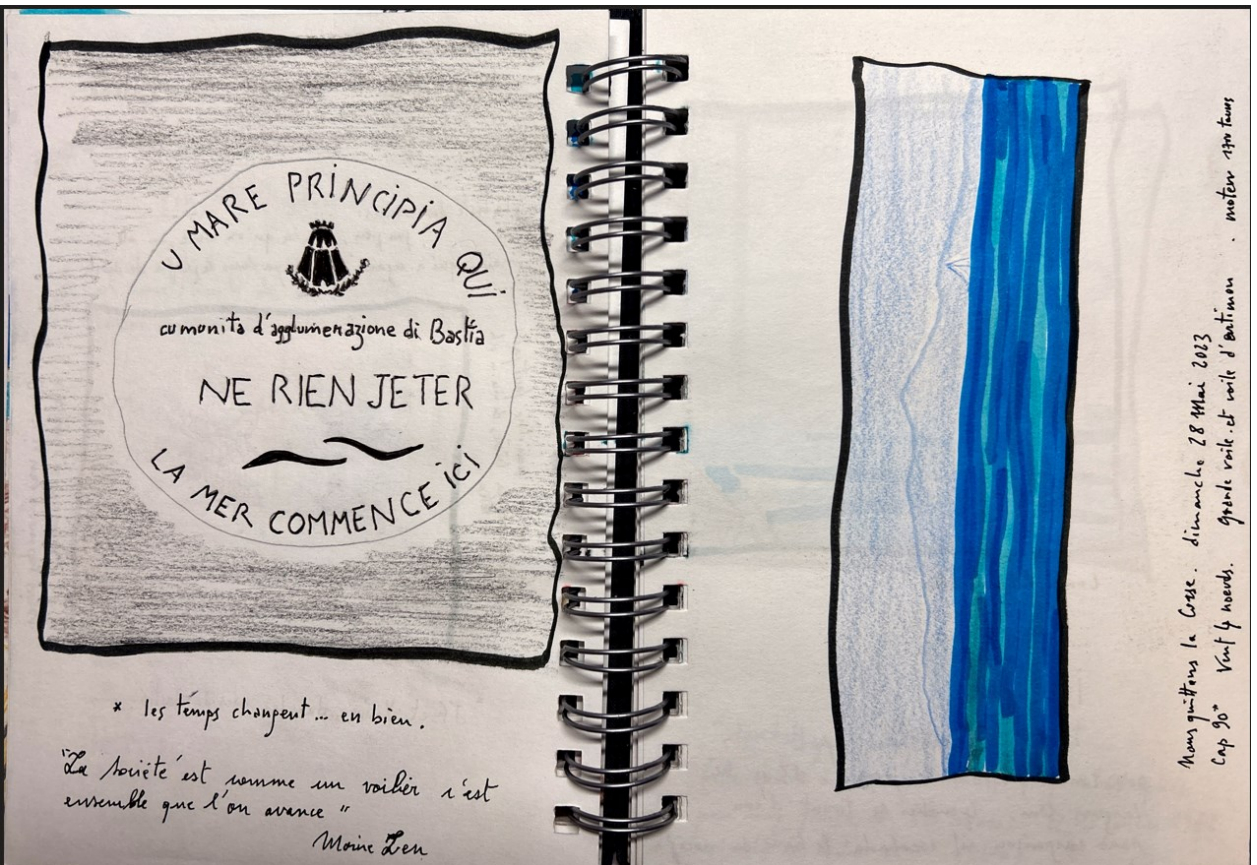 U MARE PRINCIPIA QUI
cumunità d'agglumerazione di Bastia
NE RIEN JETER
LA MER COMMENCE ICI
* les temps changent... en bien.
"La société est comme un voilier c'est
ensemble que l'on avance"
Moine Zen
Nous quittons la Corse. dimanche 28 Mai 2023
Cap 90° Vent 4 noeuds. grande voile et voile d'artimon . moteur 1700 tours